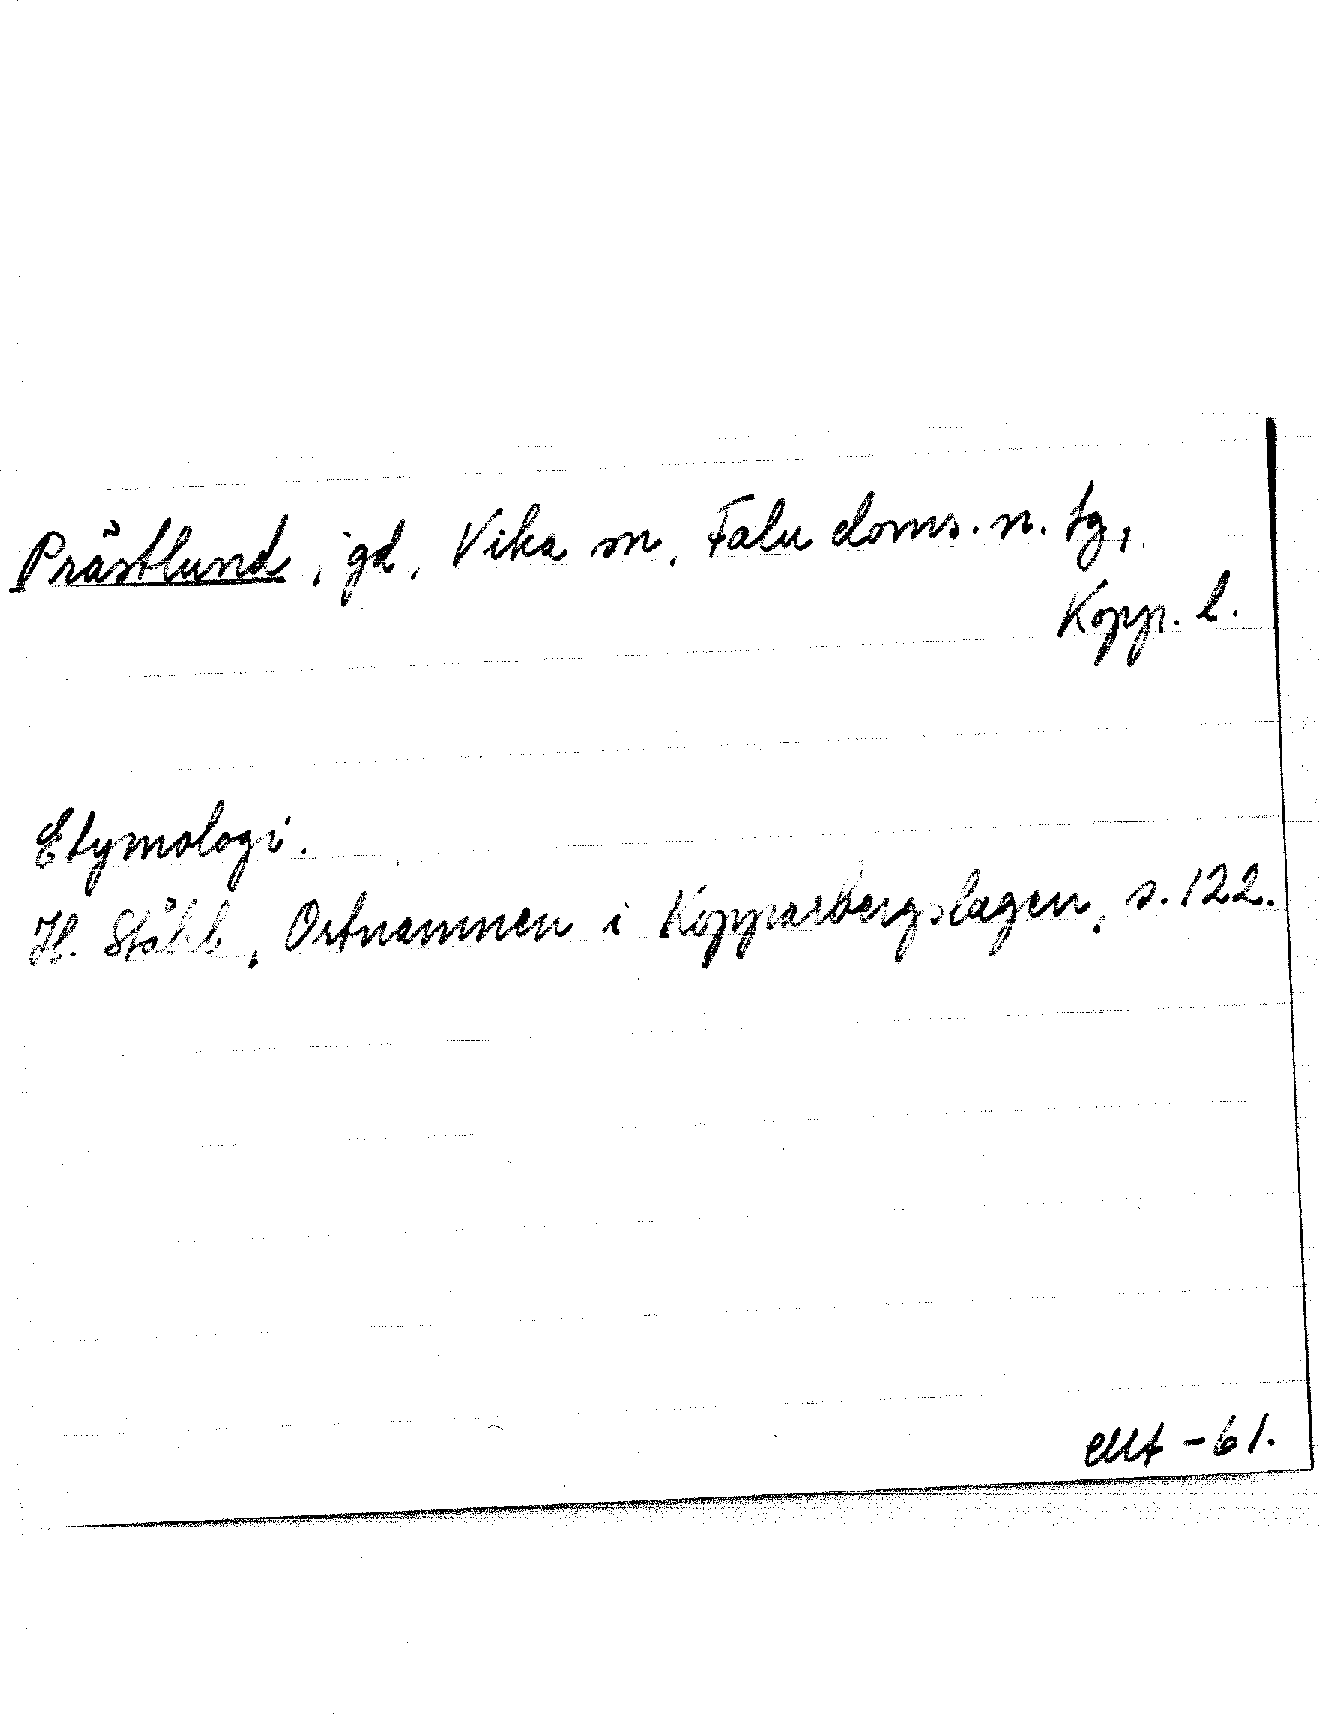 Prästlund, gd, Vika sn, Falu doms. n. tg,
Kopp. l.
Etymologi.
H. Ståhl, Ortnamnen i Kopparbergslagen, s. 122.
-61.